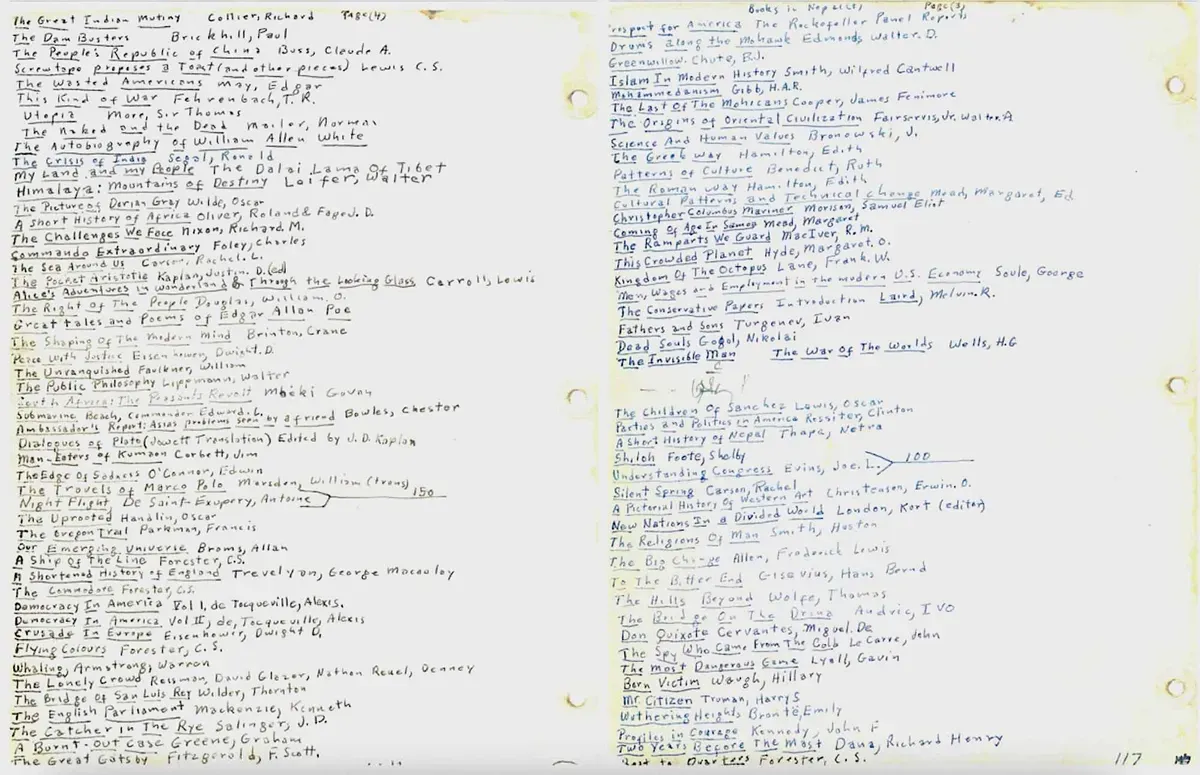 The Great Indian Mutiny Collier, Richard Page (4)
The Dam Busters Brickhill, Paul
The People's Republic of China Buss, Claude A.
Screwtape proposes a Toast (and other pieces) Lewis C.S.
The Wasted Americans May, Edgar
This Kind of War Fehrenbach, T.R.
Utopia More, Sir Thomas
The Naked and the Dead Mailer, Norman
The Autobiography of William Allen White
The Crisis of India Segal, Ronald
My Land and my People The Dalai Lama Of Tibet
Himalaya: Mountains of Destiny Leifer, Walter
The Picture of Dorian Gray Wilde, Oscar
A Short History of Africa Oliver, Roland & Fage J.D.
The Challenges We Face Nixon, Richard M.
Commando Extraordinary Foley, Charles
The Sea Around Us Carson, Rachel. L.
The Pocket Aristotle Kaplan, Justin. D. (ed)
Alice's Adventures in Wonderland & Through the Looking Glass Carroll, Lewis
The Right of The People Douglas, William. O.
Great Tales and Poems of Edgar Allan Poe
The Shaping Of The Modern Mind Brinton, Crane
Peace With Justice Eisenhower, Dwight. D.
The Unvanquished Faulkner, William
The Public Philosophy Lippmann, Walter
South Africa: The Peasants Revolt Mbeki Govan
Submarine Beach, Commander Edward. L.
Ambassador's Report: Asias problems seen by a friend Bowles, Chester
Dialogues of Plato (Jowett Translation) Edited by J.D. Kaplan
Man-Eaters of Kumaon Corbett, Jim
The Edge Of Sadness O'Connor, Edwin
The Travels of Marco Polo Marsden, William (Trans)
Night Flight De Saint-Exupery, Antoine 150
The Uprooted Handlin, Oscar
The Oregon Trail Parkman, Francis
Our Emerging Universe Broms, Allan
Ship Of The Line Forester, C.S.
A Shortened History of England Trevelyan, George Macaulay
The Commodore Forester, C.S.
Democracy In America Vol I, de Tocqueville, Alexis.
Democracy In America Vol II, de, Tocqueville, Alexis
Crusade In Europe Eisenhower, Dwight D.
Flying Colours Forester, C.S.
Whaling, Armstrong, Warren
The Lonely Crowd Reisman, David Glazer, Nathan Reuel, Denney
The Bridge of San Luis Rey Wilder, Thornton
The English Parliament Mackenzie, Kenneth
The Catcher in The Rye Salinger, J.D.
A Burnt-Out Case Greene, Graham
The Great Gatsby Fitzgerald, F. Scott.
Books in Nepal Page (3)
Prospect for America The Rockefeller Panel Reports
Drums along the Mohawk Edmonds, Walter. D.
Greenwillow. Chute, B.J.
Islam In Modern History Smith, Wilfred Cantwell
Mohammedanism Gibb, H.A.R.
The Last Of The Mohicans Cooper, James Fenimore
The Origins of Oriental Civilization Fairservis, Jr. Walter. A
Science And Human Values Bronowski, J.
The Greek Way Hamilton, Edith
Patterns of Culture Benedict, Ruth
The Roman Way Hamilton, Edith
Cultural Patterns and Technical Change Mead, Margaret, Ed
Christopher Columbus Mariner Morison, Samuel Eliot
Coming Of Age In Samoa Mead, Margaret
The Ramparts We Guard MacIver, R.M.
This Crowded Planet Hyde, Margaret. O.
Kingdom Of The Octopus Lane, Frank. W.
Men, Wages and Employment in the modern U.S. Economy Soule, George
The Conservative Papers Introduction Laird, Melvin. R.
Fathers and Sons Turgenev, Ivan
Dead Souls Gogol, Nikolai
The Invisible Man The War Of The Worlds Wells, H.G
The Children Of Sanchez Lewis, Oscar
Parties and Politics in America Rossiter, Clinton
A Short History of Nepal Thapa, Netra
Shiloh Foote, Shelby
Understanding Congress Evins, Joe. L. 100
Silent Spring Carson, Rachel
A Pictorial History Of Western Art Christensen, Erwin. O.
New Nations In a Divided World London, Kurt (editor)
The Religions Of Man Smith, Huston
The Big Change Allen, Frederick Lewis
To The Bitter End Gisevius, Hans Bernd
The Hills Beyond Wolfe, Thomas
The Bridge On The Drina Andric, IVO
Don Quixote Cervantes, Miguel. De
The Spy Who Came From The Cold Le Carre, John
The Most Dangerous Game Lyall, Gavin
Born Victim Waugh, Hillary
Mr Citizen Truman, Harry S
Wuthering Heights Brontë, Emily
Profiles in Courage Kennedy, John F
Two Years Before The Mast Dana, Richard Henry
Beat to Quarters Forester, C.S. 117